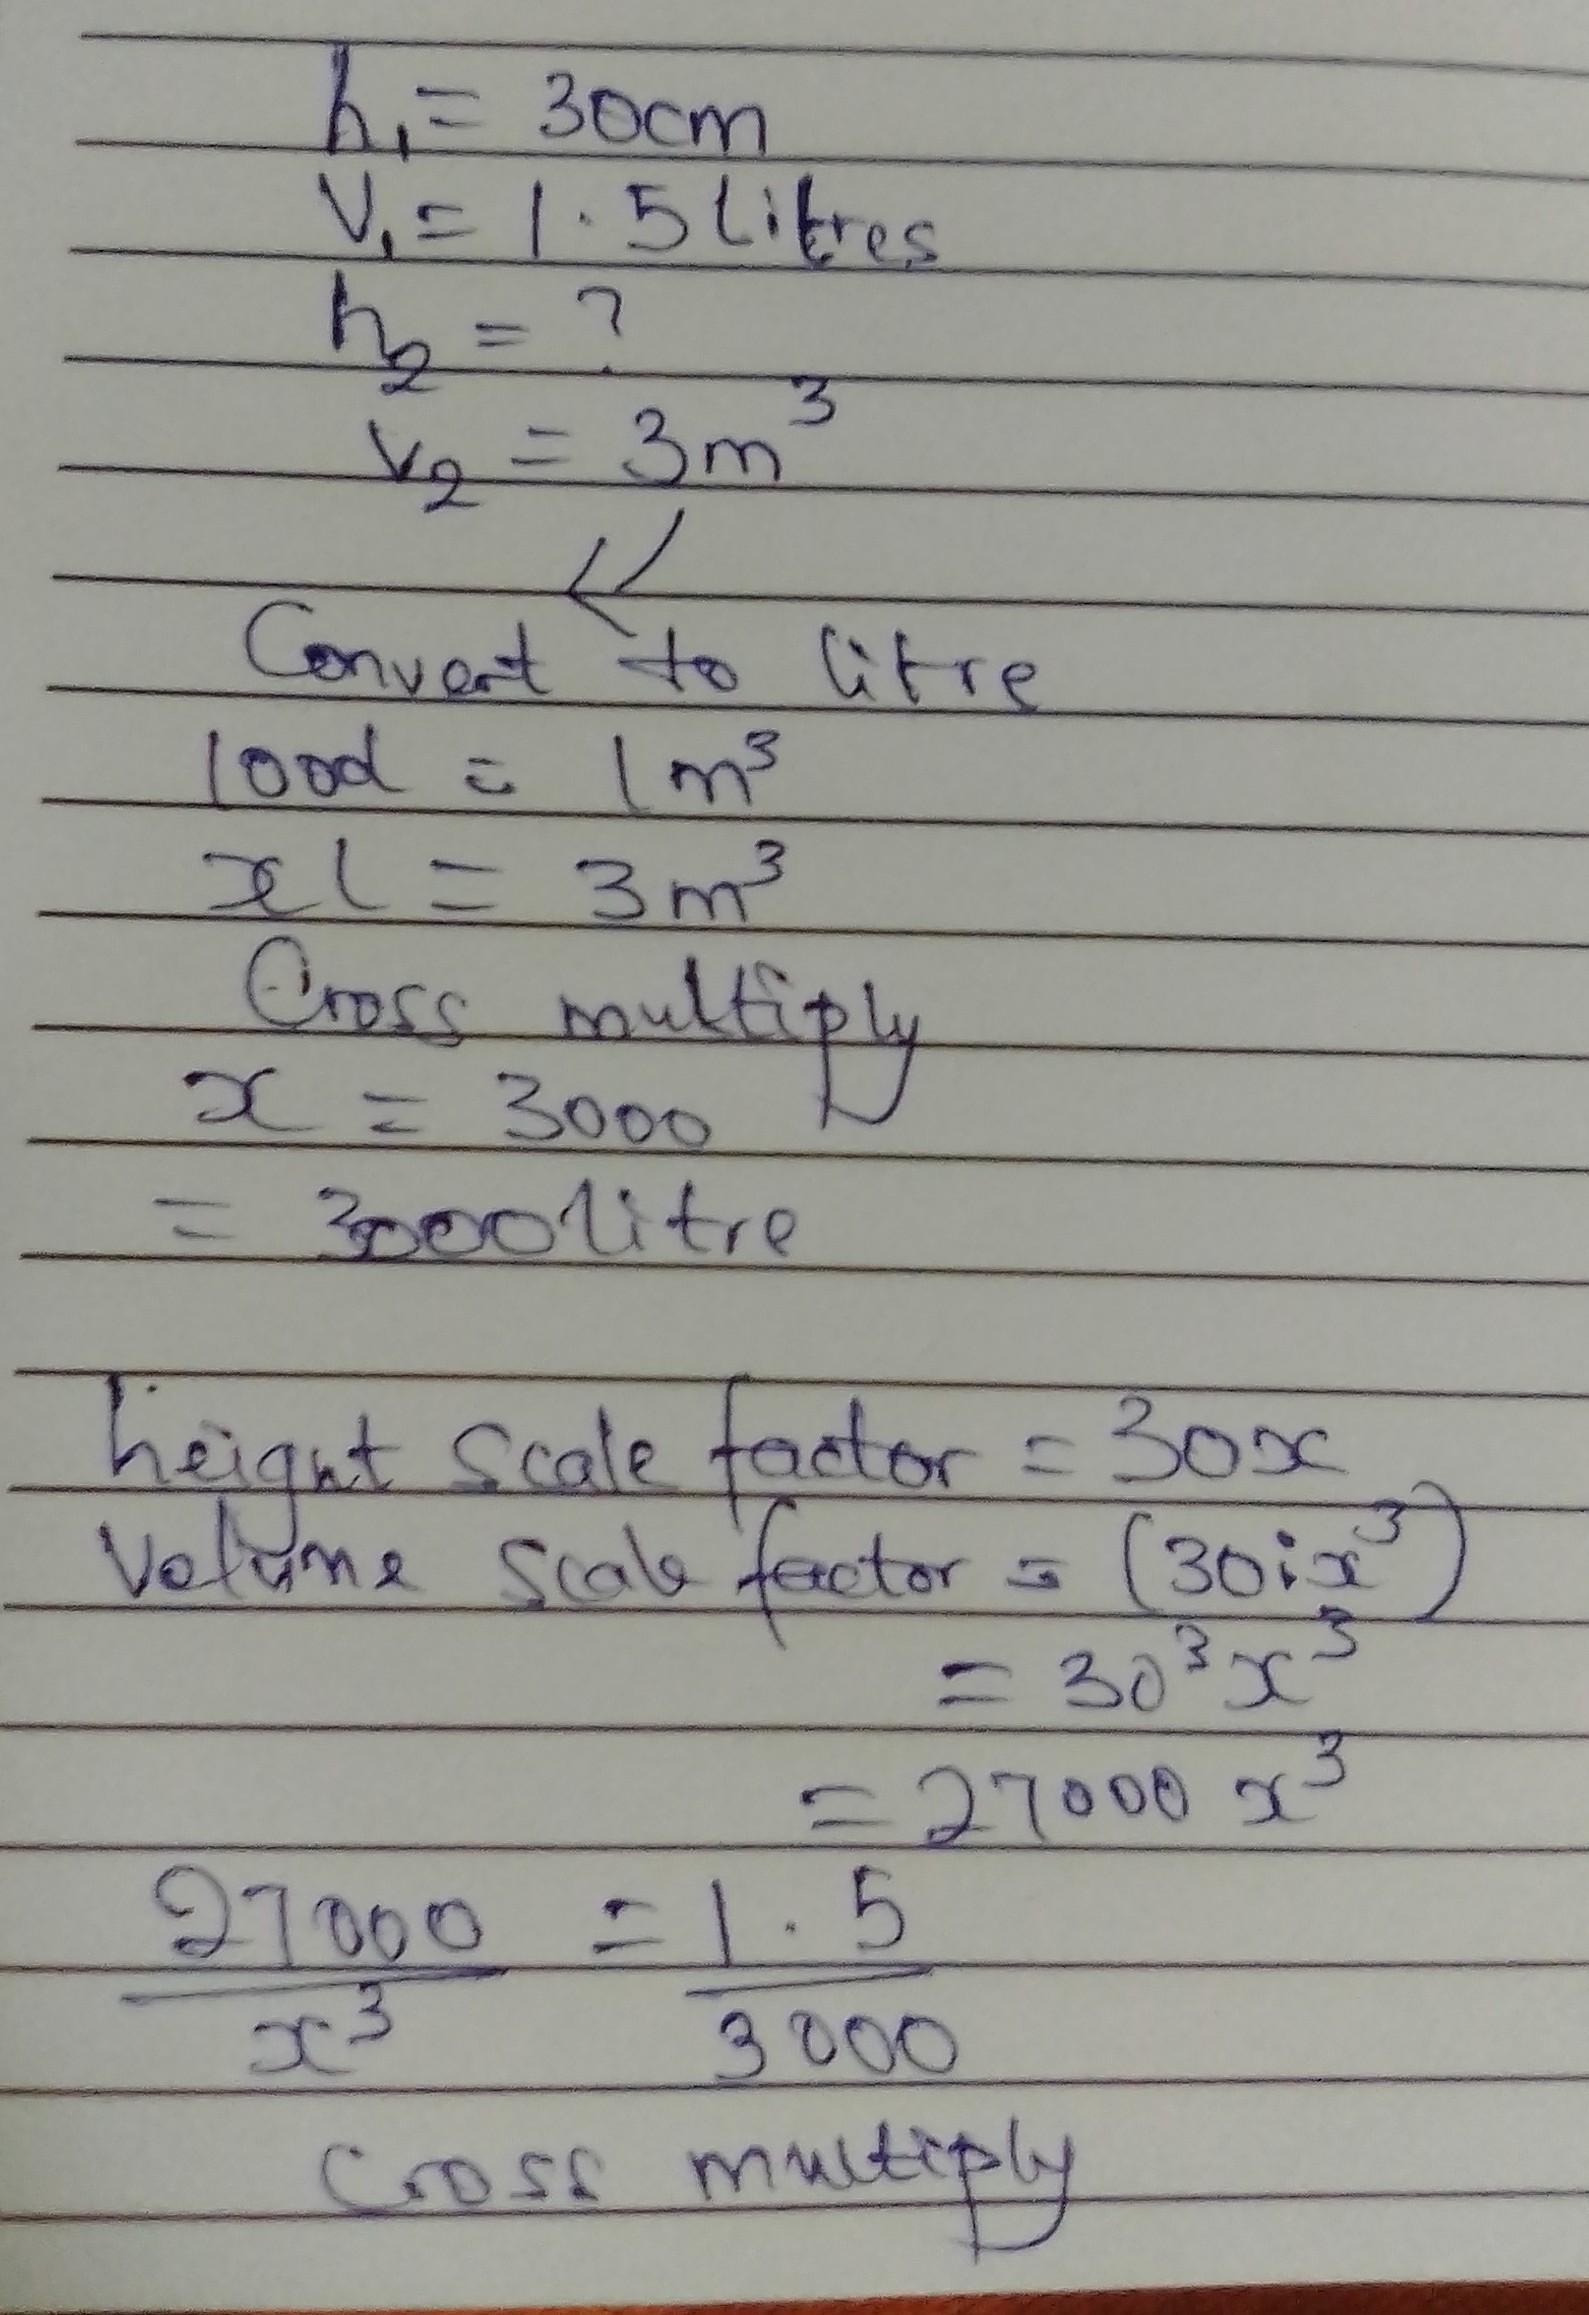 h₁ = 30cm
V₁ = 1.5 litres
h₂ = ?
V₂ = 3m³
Convert to litre
1000l = 1m³
xl = 3m³
Cross multiply
x = 3000
= 3000litre
height scale factor = 30x
Volume scale factor = (30:x³)
= 30³x³
= 27000 x³
27000/x³ = 1.5/3000
Cross multiply